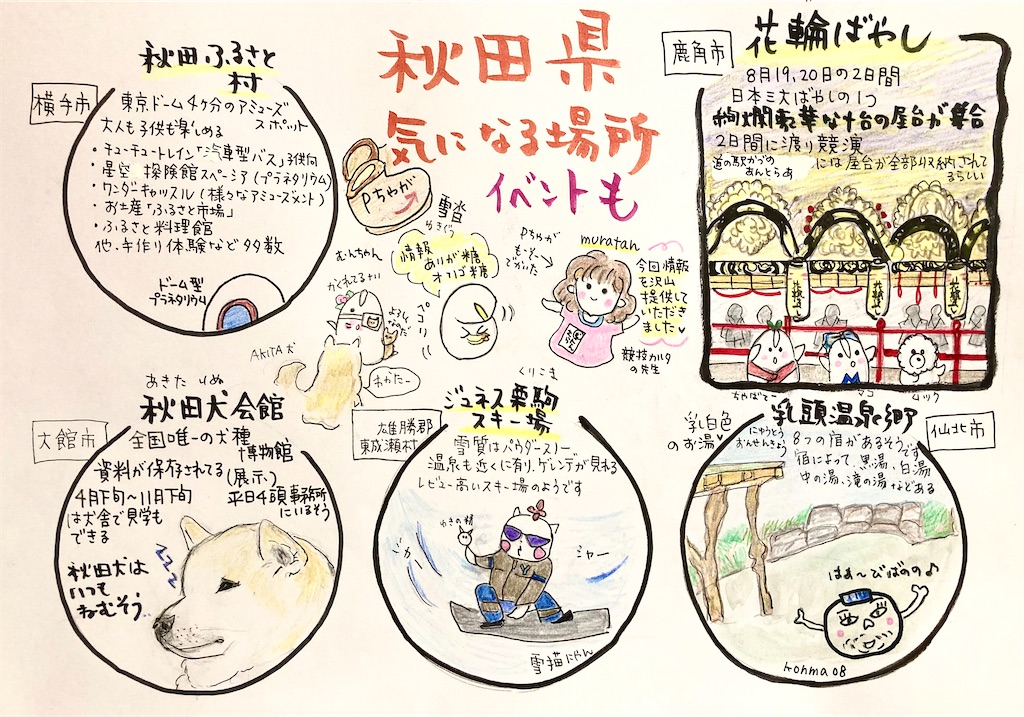 秋田県
気になる場所
イベントも
横手市
秋田ふるさと
村
東京ドーム4ヶ分のアミューズ
スポット
大人も子供も楽しめる
・チューチュートレイン「汽車型バス」子供向
・星空 探険館スペーシア(プラネタリウム)
・ワンダーキャッスル(様々なアミューズメント)
・お土産「ふるさと市場」
・ふるさと料理館
他・手作り体験など多数
ドーム型
プラネタリウム
Pちゃが
雪沓
ゆきぐつ
むんちゃん
かくれてるナリ
情報
ありが糖
オリゴ糖
ペコリ
よろしく
AKITA犬
わかたー
Pちゃが
もっと
でかいた
muratan
今回情報
を沢山
提供して
いただき
ました
競技カルタ
の先生
鹿角市
花輪ばやし
8月19、20日の2日間
日本三大ばやしの1つ
絢爛豪華な十台の屋台が集合
2日間に渡り競演
道の駅かづの
あんとらあ
には屋台が全部収納されて
るらしい
花輪
ちゃばてー
マコ
ムック
大館市
あきた いぬ
秋田犬会館
全国唯一の犬種
博物館
資料が保存されてる
(展示)
4月下旬〜11月下旬
は犬舎で見学も
できる
平日4頭事務所
にいるそう
秋田犬は
いつも
ねむそう
zzz
雄勝郡
東成瀬村
くりこま
ジュネス栗駒
スキー場
雪質はパウダースノー
温泉も近くに有り、ゲレンデが見れる
レビュー高いスキー場のようです
ゆきの精
シャー
雪猫にゃん
仙北市
乳頭温泉郷
にゅうとう
おんせんきょう
乳白色
のお湯♥
8つの宿があるそうです
宿によって、黒湯、白湯
中の湯、滝の湯などある
はぁ〜びばのの♪
honma08